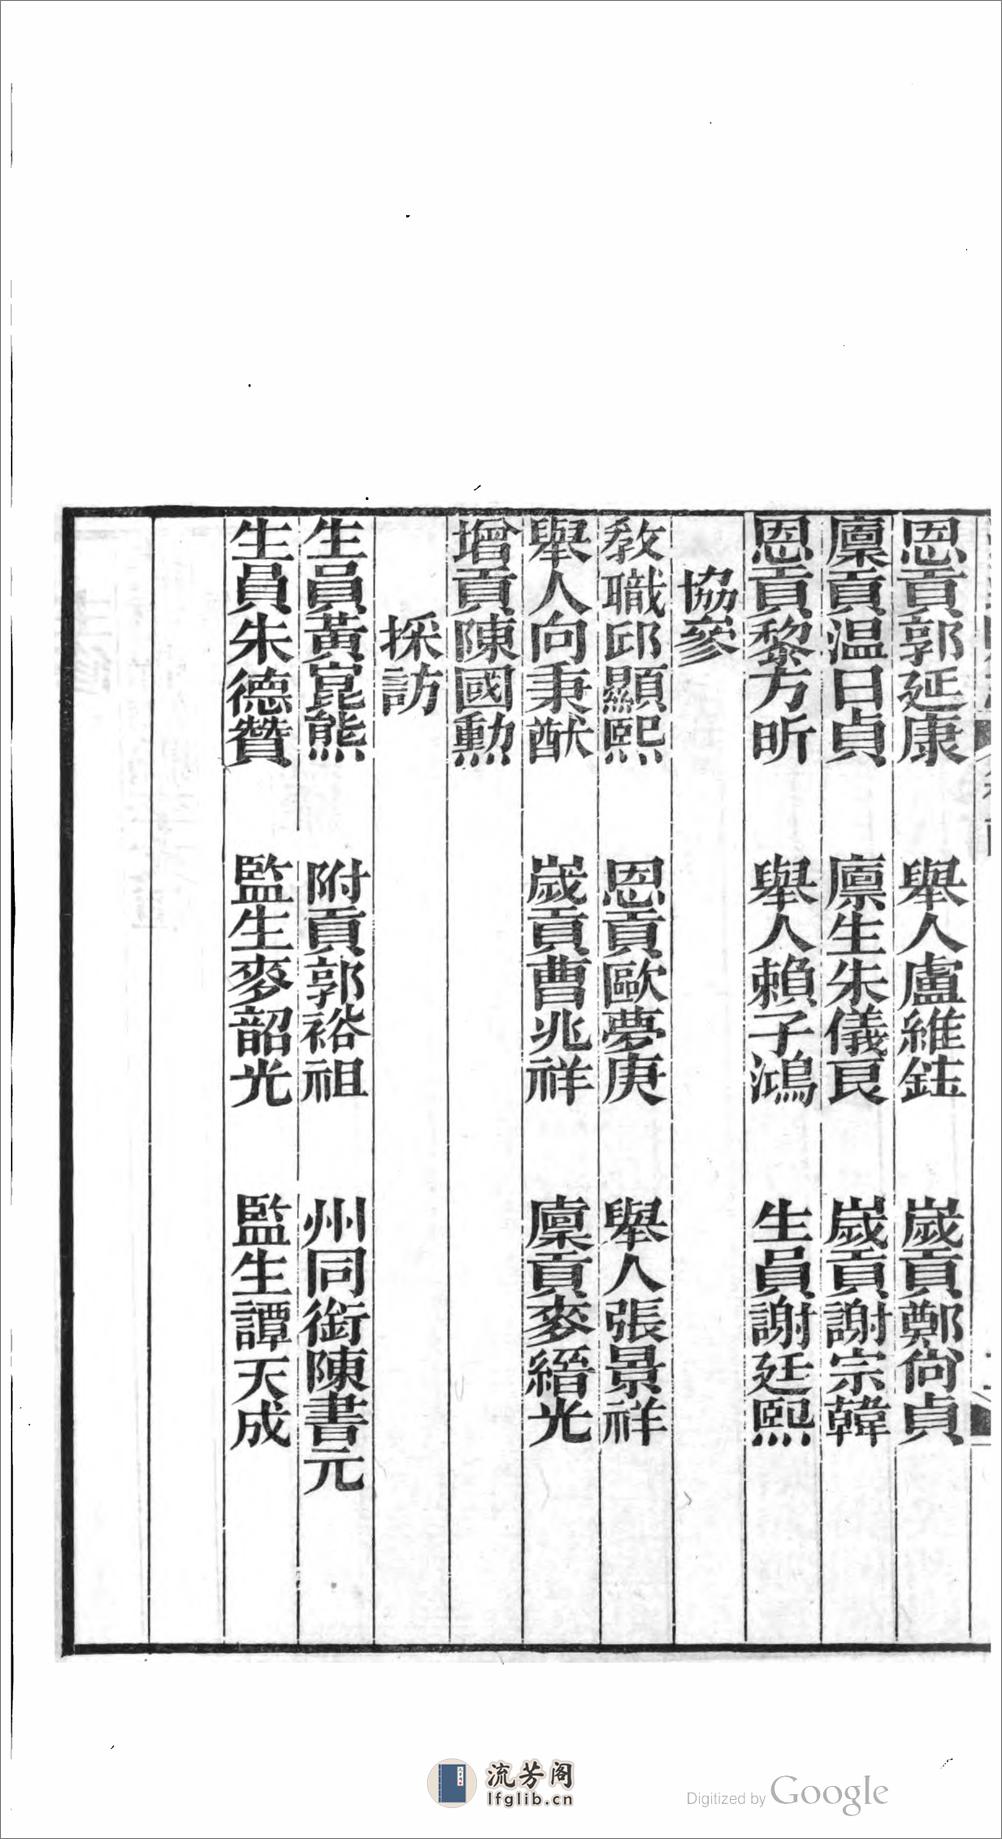 恩貢郭延康　舉人盧維鈺　歲貢鄭尙貞
廩貢温日貞　廩生朱儀良　歲貢謝宗韓
恩貢黎方昕　舉人賴子鴻　生員謝廷熙
協參
教職邱顯熙　恩貢歐夢庚　舉人張景祥
舉人向秉猷　歲貢曹兆祥　廩貢麥縉光
增貢陳國勳
採訪
生員黃崑熊　附貢郭裕祖　州同銜陳書元
生員朱德贊　監生麥韶光　監生譚天成
流芳阁
lfglib.cn
Digitized by Google